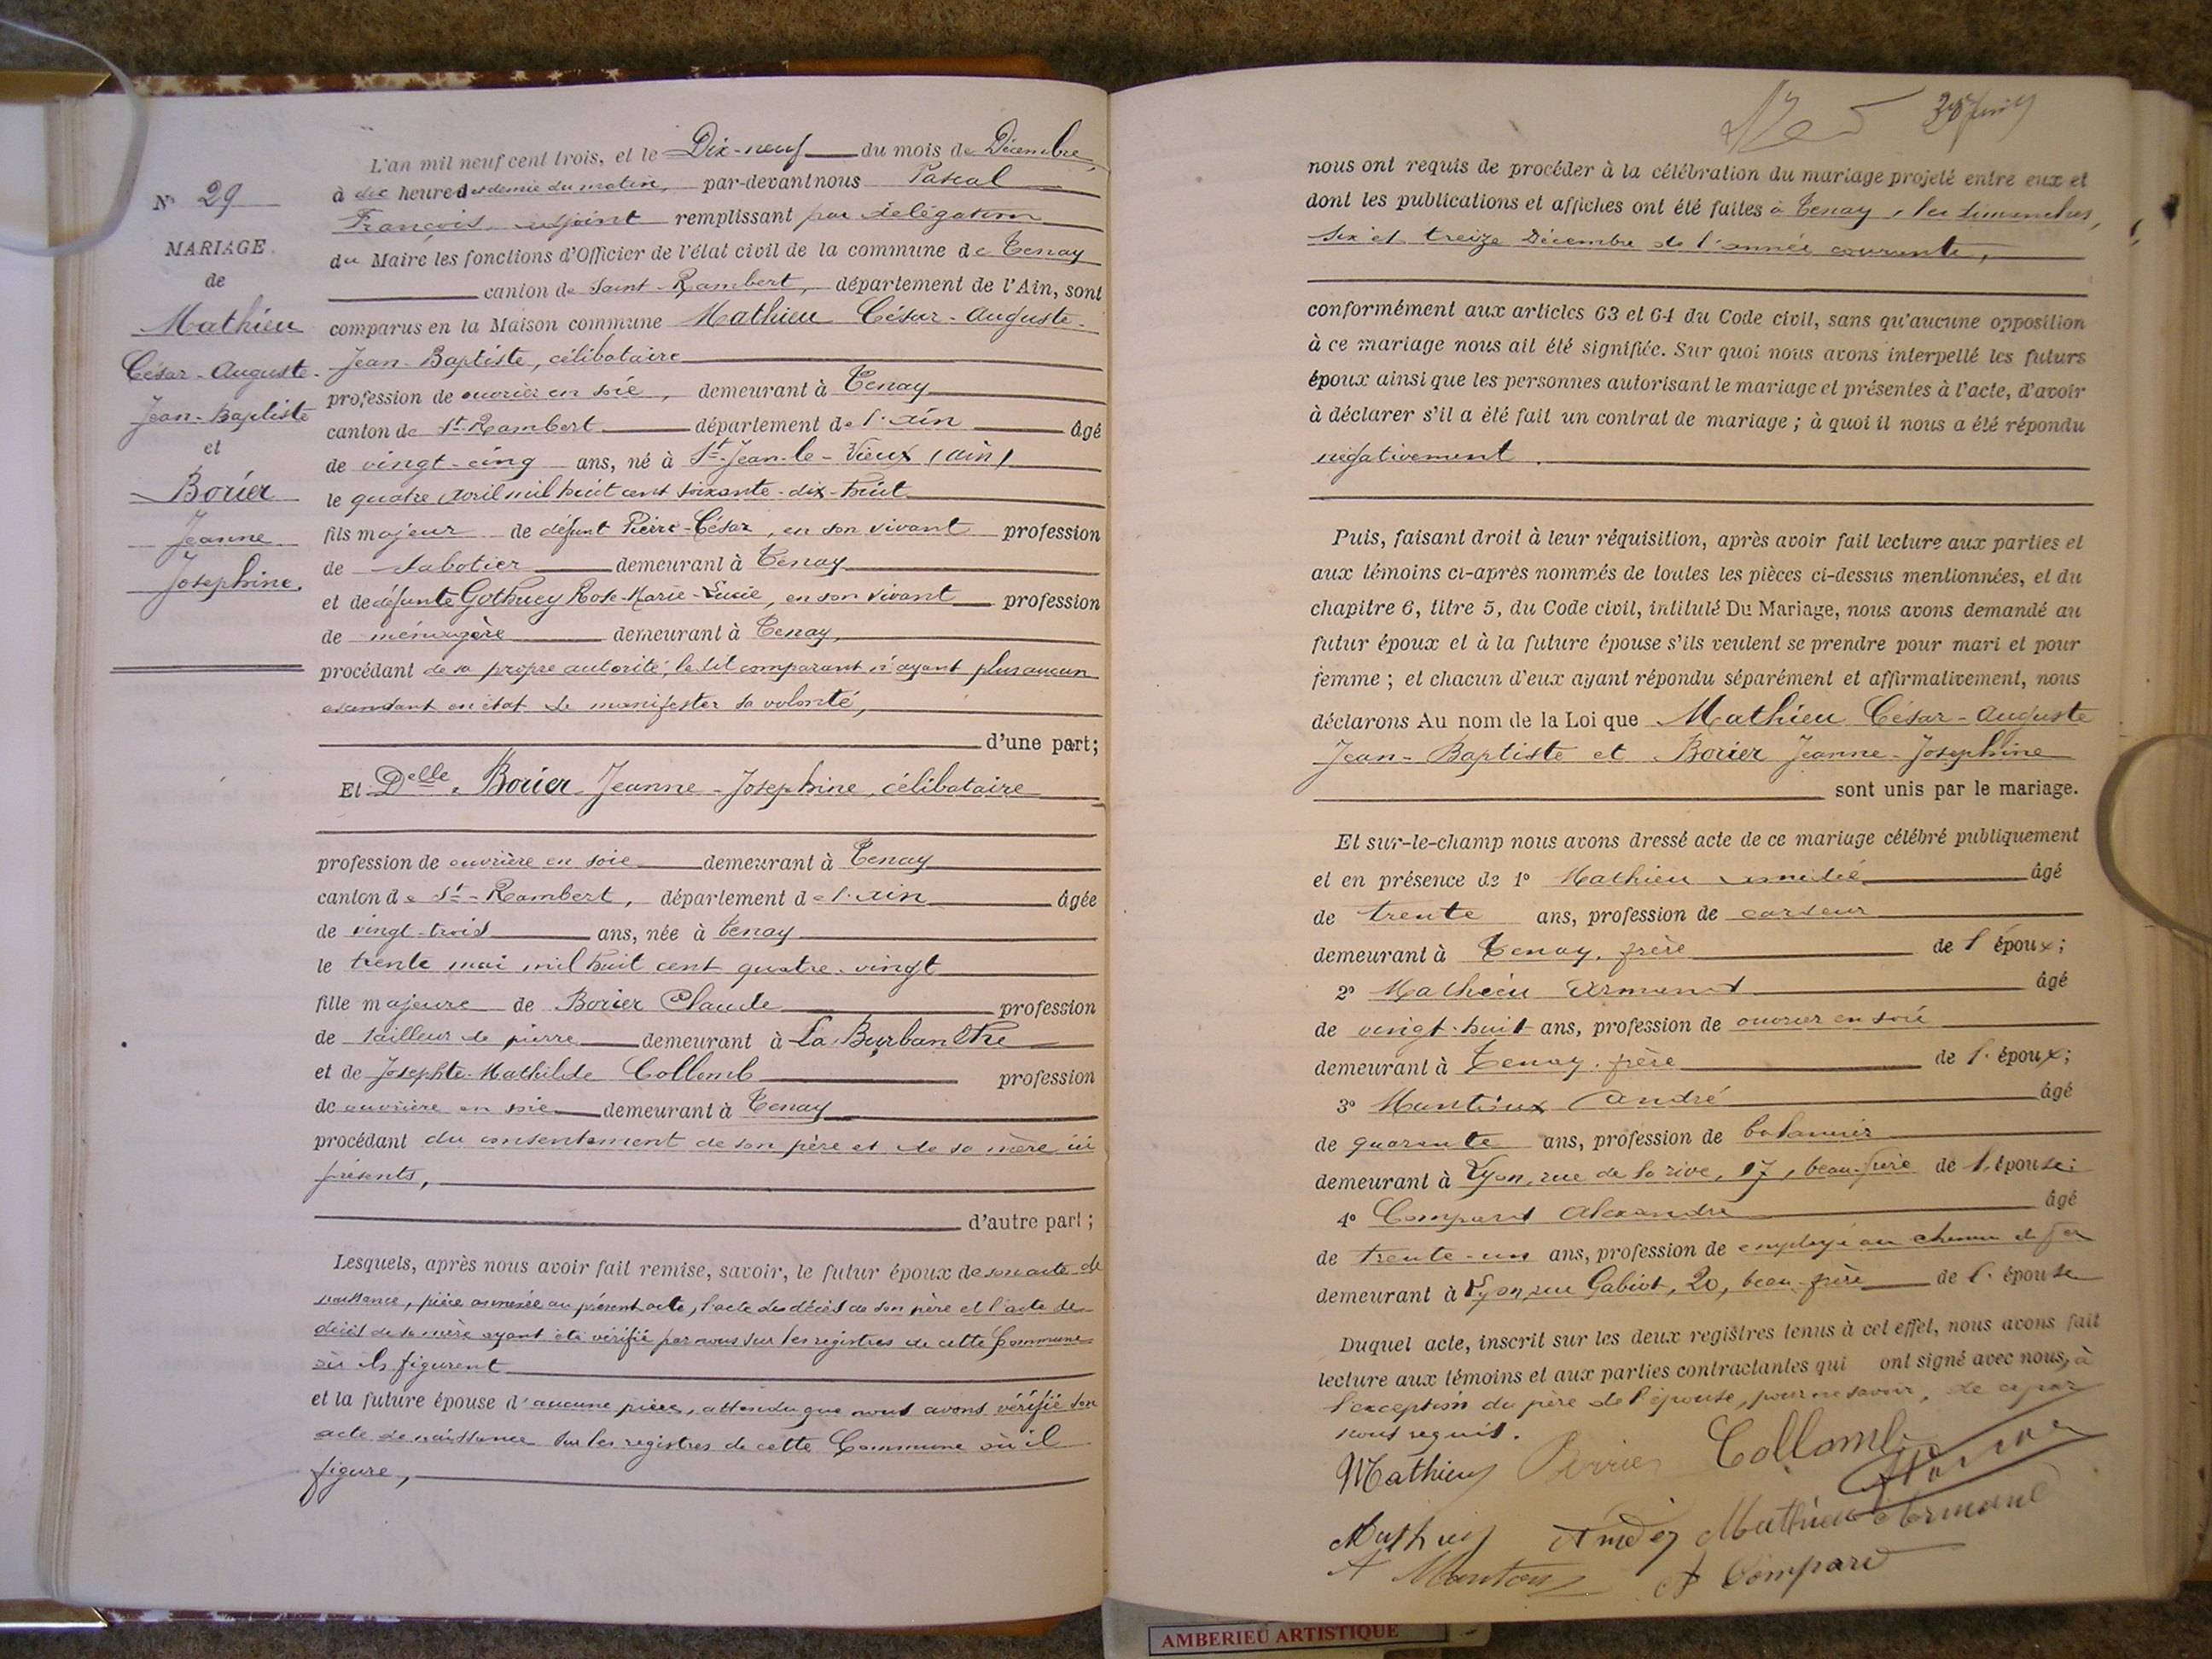 N° 29
MARIAGE
de
Mathieu
César-Auguste-
Jean-Baptiste
et
Borier
Jeanne
Josephine.
L'an mil neuf cent trois, et le Dix-neuf du mois de Décembre,
à dix heures et demie du matin, par-devant nous Pascal
François, adjoint remplissant par délégation
du Maire les fonctions d'Officier de l'état civil de la commune de Tenay
canton de Saint-Rambert, département de l'Ain, sont
comparus en la Maison commune Mathieu César-Auguste-
Jean-Baptiste, célibataire
profession de ouvrier en soie, demeurant à Tenay
canton de St-Rambert département de l'Ain âgé
de vingt-cinq ans, né à St-Jean-le-Vieux (Ain)
le quatre avril mil huit cent soixante-dix-huit
fils majeur de défunt Pierre-César, en son vivant profession
de sabotier demeurant à Tenay
et de défunte Gothuey Rose-Marie-Lucie, en son vivant profession
de ménagère demeurant à Tenay,
procédant de sa propre autorité, le dit comparant n'ayant plus aucun
ascendant en état de manifester sa volonté,
d'une part;
Et Delle Borier Jeanne-Josephine, célibataire
profession de ouvrière en soie demeurant à Tenay
canton de St-Rambert, département de l'Ain âgée
de vingt-trois ans, née à Tenay
le trente mai mil huit cent quatre-vingt
fille majeure de Borier Claude profession
de tailleur de pierre demeurant à La Burbanche
et de Josephte-Mathilde Collomb profession
de ouvrière en soie demeurant à Tenay
procédant du consentement de son père et de sa mère ici
présents,
d'autre part;
Lesquels, après nous avoir fait remise, savoir, le futur époux de son acte de
naissance, pièce annexée au présent acte, l'acte de décès de son père et l'acte de
décès de sa mère ayant été vérifié par nous sur les registres de cette Commune
où ils figurent
et la future épouse d'aucune pièce, attendu que nous avons vérifié son
acte de naissance sur les registres de cette Commune où il
figure,
nous ont requis de procéder à la célébration du mariage projeté entre eux et
dont les publications et affiches ont été faites à Tenay, les dimanches,
six et treize Décembre de l'année courante,
conformément aux articles 63 et 64 du Code civil, sans qu'aucune opposition
à ce mariage nous ait été signifiée. Sur quoi nous avons interpellé les futurs
époux ainsi que les personnes autorisant le mariage et présentes à l'acte, d'avoir
à déclarer s'il a été fait un contrat de mariage; à quoi il nous a été répondu
négativement.
Puis, faisant droit à leur réquisition, après avoir fait lecture aux parties et
aux témoins ci-après nommés de toutes les pièces ci-dessus mentionnées, et du
chapitre 6, titre 5, du Code civil, intitulé Du Mariage, nous avons demandé au
futur époux et à la future épouse s'ils veulent se prendre pour mari et pour
femme; et chacun d'eux ayant répondu séparément et affirmativement, nous
déclarons Au nom de la Loi que Mathieu César-Auguste
Jean-Baptiste et Borier Jeanne-Josephine
sont unis par le mariage.
Et sur-le-champ nous avons dressé acte de ce mariage célébré publiquement
et en présence de 1° Mathieu Amédée âgé
de trente ans, profession de cardeur
demeurant à Tenay, frère de l'époux;
2° Mathieu Armand âgé
de vingt-huit ans, profession de ouvrier en soie
demeurant à Tenay, frère de l'époux;
3° André âgé
de quarante ans, profession de
demeurant à Lyon, rue de la rive, 17, beau-frère de l'épouse;
4° Compard Alexandre âgé
de trente-un ans, profession de employé au chemin de fer
demeurant à Lyon, rue Gabiot, 20, beau-frère de l'épouse
Duquel acte, inscrit sur les deux registres tenus à cet effet, nous avons fait
lecture aux témoins et aux parties contractantes qui ont signé avec nous, à
l'exception du père de l'épouse, pour ne savoir, de ce par
nous requis.
Mathieu Collomb
Mathieu Amédé Mathieu Armand
A Compard
AMBERIEU ARTISTIQUE